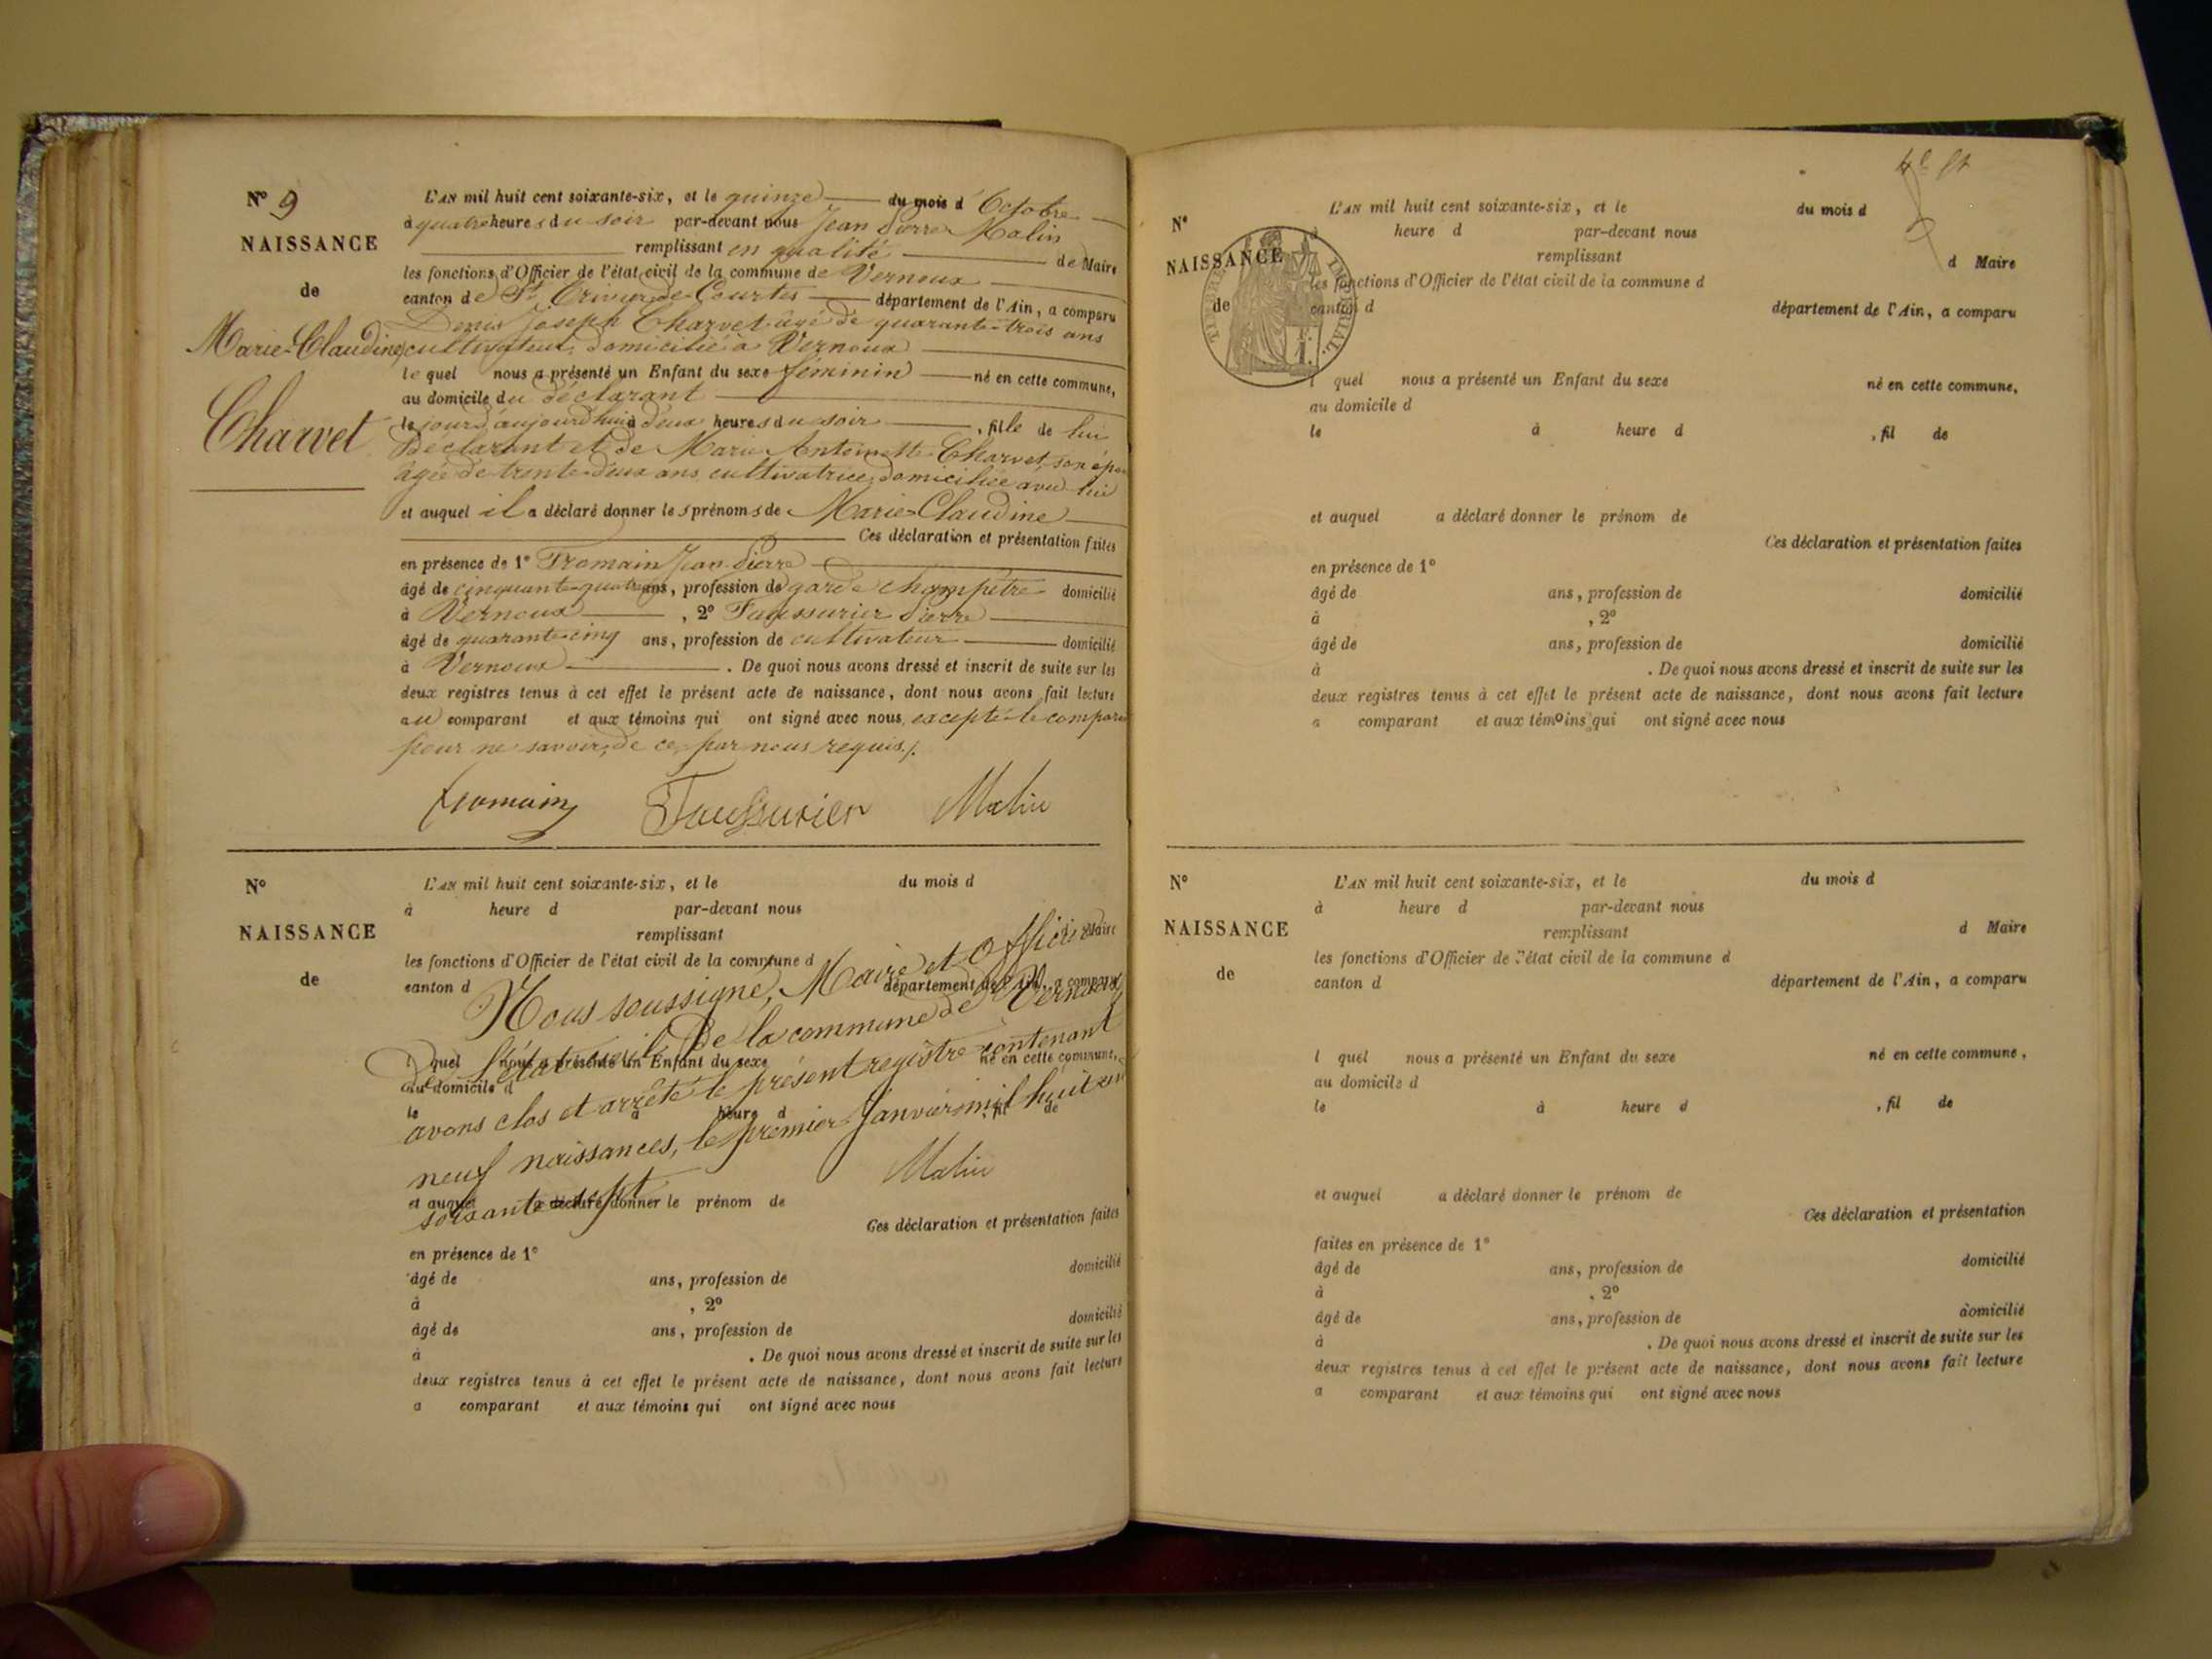 N° 9
NAISSANCE
de
Marie-Claudine
Charvet
L'AN mil huit cent soixante-six, et le quinze du mois d'Octobre
à quatre heures du soir par-devant nous Jean Pierre Malin
remplissant en qualité de Maire
les fonctions d'Officier de l'état civil de la commune de Vernoux
canton de St Trivier de Courtes département de l'Ain, a comparu
Denis Joseph Charvet âgé de quarante-trois ans
cultivateur, domicilié à Vernoux
le quel nous a présenté un Enfant du sexe féminin né en cette commune,
au domicile du déclarant
le jour d'aujourd'hui à deux heures du soir, fille de lui
Déclarant et de Marie Antoinette Charvet, son épou
âgée de trente-deux ans cultivatrice, domiciliée avec lui
et auquel il a déclaré donner les prénoms de Marie-Claudine
Ces déclaration et présentation faites
en présence de 1° Fromain Jean Pierre
âgé de cinquante-quatre ans, profession de garde champêtre domicilié
à Vernoux, 2° Faussurier Pierre
âgé de quarante-cinq ans, profession de cultivateur domicilié
à Vernoux. De quoi nous avons dressé et inscrit de suite sur les
deux registres tenus à cet effet le présent acte de naissance, dont nous avons fait lecture
au comparant et aux témoins qui ont signé avec nous, excepté le compara
pour ne savoir, de ce par nous requis./.
fromain Faussurier Malin
N°
NAISSANCE
de
L'AN mil huit cent soixante-six, et le du mois d
à heure d par-devant nous
remplissant Maire
les fonctions d'Officier de l'état civil de la commune d
canton d département de l'Ain, a comparu
l quel nous a présenté un Enfant du sexe né en cette commune,
au domicile d
le à heure d , fil de
et auquel a déclaré donner le prénom de
Nous soussigné, Maire et Officier
de l'état civil de la commune de Vernoux
avons clos et arrêté le présent registre contenant
neuf naissances, le premier Janvier mil huit cent
soixante-sept
Malin
Ces déclaration et présentation faites
en présence de 1°
âgé de ans, profession de domicilié
à , 2°
âgé de ans, profession de domicilié
à . De quoi nous avons dressé et inscrit de suite sur les
deux registres tenus à cet effet le présent acte de naissance, dont nous avons fait lecture
a comparant et aux témoins qui ont signé avec nous
N°
NAISSANCE
de
TIMBRE IMPERIAL.
F.
1.
L'AN mil huit cent soixante-six, et le du mois d
à heure d par-devant nous
remplissant d Maire
les fonctions d'Officier de l'état civil de la commune d
canton d département de l'Ain, a comparu
l quel nous a présenté un Enfant du sexe né en cette commune,
au domicile d
le à heure d , fil de
et auquel a déclaré donner le prénom de
Ces déclaration et présentation faites
en présence de 1°
âgé de ans, profession de domicilié
à , 2°
âgé de ans, profession de domicilié
à . De quoi nous avons dressé et inscrit de suite sur les
deux registres tenus à cet effet le présent acte de naissance, dont nous avons fait lecture
a comparant et aux témoins qui ont signé avec nous
N°
NAISSANCE
de
L'AN mil huit cent soixante-six, et le du mois d
à heure d par-devant nous
remplissant d Maire
les fonctions d'Officier de l'état civil de la commune d
canton d département de l'Ain, a comparu
l quel nous a présenté un Enfant du sexe né en cette commune,
au domicile d
le à heure d , fil de
et auquel a déclaré donner le prénom de
Ces déclaration et présentation
faites en présence de 1°
âgé de ans, profession de domicilié
à , 2°
âgé de ans, profession de domicilié
à . De quoi nous avons dressé et inscrit de suite sur les
deux registres tenus à cet effet le présent acte de naissance, dont nous avons fait lecture
a comparant et aux témoins qui ont signé avec nous